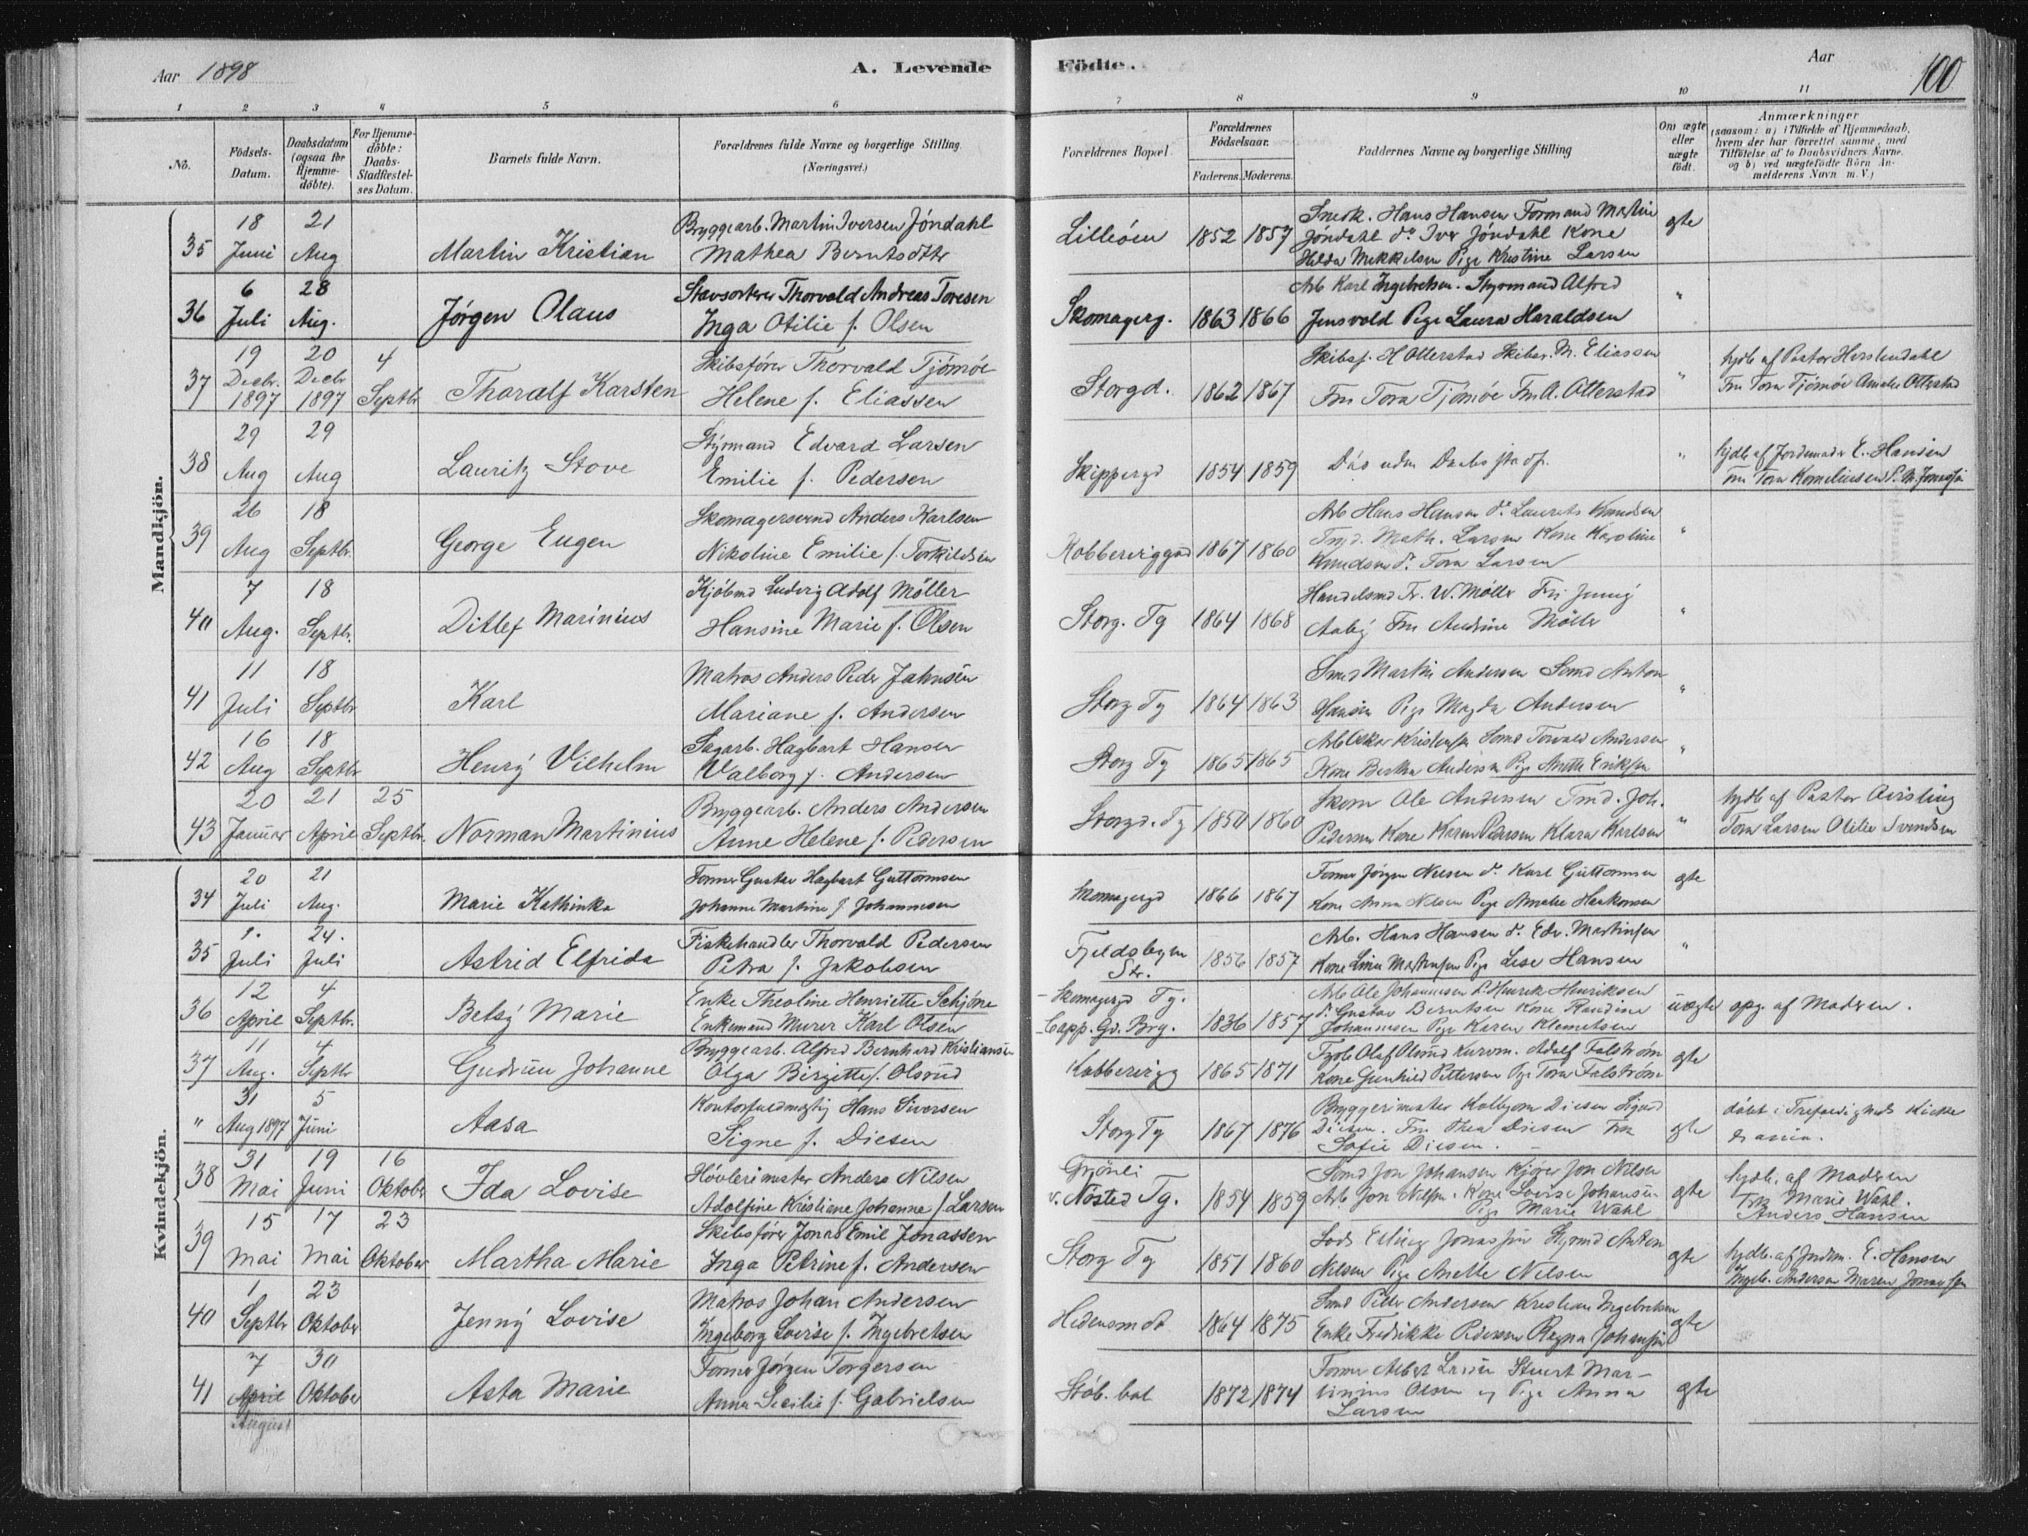 Aar 1898
A. Levende Födte.
Aar
100
1 2 3 4 5 6 7 8 9 10 11
No.
Födsels-Datum.
Daabsdatum (ogsaa for Hjemme-döbte).
For Hjemme-döbte: Daabs-Stadfæstel-ses Datum.
Barnets fulde Navn.
Forældrenes fulde Navne og borgerlige Stilling. (Næringsvei.)
Forældrenes Bopæl.
Forældrenes Födselsaar.
Faderens. Moderens.
Faddernes Navne og borgerlige Stilling
Om ægte eller uægte födt.
Anmærkninger
(saasom: a) i Tilfælde af Hjemmedaab, hvem der har forrettet samme, med Tilföielse af to Daabsvidners Navne. og b) ved uægtefödte Börn An-melderens Navn m. V.)
Mandkjön.
35 18 Juni 21 Aug Martin Kristian Bryggearb. Martin Iversen Jøndahl Mathea Berntsdtr Lilleöen 1852 1857 Snedk. Hans Hansen Formand Martin Jöndahl do Iver Jöndahl Kone Hilda Mikkelsen Pige Kristine Larsen gte
36 6 Juli 28 Aug. Jørgen Olaus Stavsorterer Thorvald Andreas Toresen Inga Otilie f. Olsen Skomagerg. 1863 1866 Arb Karl Ingebretsen. Styrmand Alfred Jensvold Pige Laura Haraldsen "
37 19 Decbr. 1897 20 Decbr 1897 4 Septbr Thoralf Karsten Skibsfører Thorvald Tjömöe Helene f. Eliassen Storgd. 1862 1867 Skibsf. H Otterstad Skibsr. M. Eliassen Fru Tora Tjömöe Fru A. Otterstad " hjdb af Pastor Herslendahl Fru Tora Tjömöe Amalie Otterstad
38 29 Aug 29 Aug Lauritz Stove Styrmand Edvard Larsen Emilie f. Pedersen Skippergd 1854 1859 Död uden Daabsstadf. " hjdb af Jordemoder E. Hansen Fru Tora Korneliussen
39 26 Aug 18 Septbr. George Eugen Skomagersvend Anders Karlsen Nikoline Emilie f. Torkildsen Kobberviggad 1867 1860 Arb Hans Hansen do Laurits Knudsen Math. Larsen Kone Karoline Knudsen do Tora Larsen "
40 7 Aug. 18 Septbr. Ditlef Marinius Kjöbmd Ludvig Adolf Möller Hansine Marie f. Olsen Storg. Tg 1864 1868 Handelsmd Fr. W. Møller Frk Jenny Aaby Fru Andrine Möller "
41 11 Juli 18 Septbr Karl Matros Anders Peder Jahnsen Mariane f. Andersen Storg Tg 1864 1863 Smd Martin Andersen Sømd Anton Hansen Pige Magda Andersen "
42 16 Aug 18 Septbr Henry Vilhelm Sagarb. Hagbart Hansen Valborg f. Andersen Storg Tg 1865 1865 Arb Oskar Kristensen Sømd Torvald Andersen Kone Bertha Andersen Pige Anette Eriksen "
43 20 Januar 21 April 25 Septbr. Norman Martinius Bryggearb. Anders Andersen Anne Helene f. Pedersen Storgd. Tg 1850 1860 Skom Ole Andersen Tmd. Joh. Pedersen Kone Karen Larsen Klara Karlsen " hjdb af Pastor Quisling Tora Larsen Otilie Svendsen
Kvindekjön.
34 20 Juli 21 Aug. Marie Kathinka Former Gustav Hagbart Guttormsen Johanne Martine f Johannesen Skomagergd 1866 1867 Former Jørgen Nilsen do Karl Guttormsen Kone Anna Nilsen Pige Amalie Haakonsen gte
35 9. Juli 24. Juli Astrid Elfrida Fiskehandler Thorvald Pedersen Petra f. Jakobsen Fjeldsbyen Str. 1856 1857 Arb. Hans Hansen do Edv. Martinsen Kone Line Martinsen Pige Lise Hansen "
36 12 April 4 Septbr. Betsy Marie Enke Theoline Henriette Schjöne Enkemand Murer Karl Olsen Skomagergd Tg. Capp. Gd. Brg. 1836 1857 Arb Ole Johannesen do Henrik Henriksen do Gustav Berntsen Kone Randine Johannesen Pige Karen Klemetsen uægte opg. af Modren.
37 11 Aug. 4 Septbr Gudrun Johanne Bryggearb. Alfred Bernhard Kristiansen Olga Birgitte f. Olsrud Kobbervigg 1865 1871 Olaf Olsrud Kurvm. Adolf Falström Kone Gunhild Pettersen Pige Tora Falström gte
" 31 Aug 1897 5 Juni Aasa Kontorfuldmægtig Hans Siversen Signe f. Diesen Storg Tg 1867 1876 Bryggerimester Kolbjørn Diesen Sigurd Diesen. Fru Thea Diesen Frk Sofie Diesen. gte döbt i Trefoldigheds Kirke
38 31 Mai 19 Juni 16 Oktober Ida Lovise Hövlerimester Anders Nilsen Adolfine Kristiane Johanne f. Larsen Grjönli v. Nösted Tg. 1854 1859 Sömd Jon Johansen Kjörer Jon Nilsen Arb Jon Nilsen. Kone Lovise Johansen Pige Marie Wahl gte hjdb. af Modren Frk Marie Wahl. Anders Hansen
39 15 Mai 17 Mai 23 Oktober Martha Marie Skibsfører Jonas Emil Jonassen Inga Petrine f. Andersen Storg Tg 1851 1860 Lods Erling Jonassen Styrmd Anton Nilsen Pige Anette Nilsen gte hjdb. af Jordm. E. Hansen Ingeb. Andersen Maren Jonassen
40 1 Septbr 23 Oktober Jenny Lovise Matros Johan Andersen Ingeborg Lovise f. Ingebretsen Hedensmdt 1864 1875 Sömd Peder Andersen Kristian Ingebretsen Enke Fredrikke Pedersen Ragna Johansen gte
41 7 April August 30 Oktober Asta Marie Former Jørgen Torgersen Anna Secilie f. Gabrielsen Stöb. bat 1872 1874 Former Albert Larsen Stuert Mar-tinius Olsen og Pige Anna Larsen gte